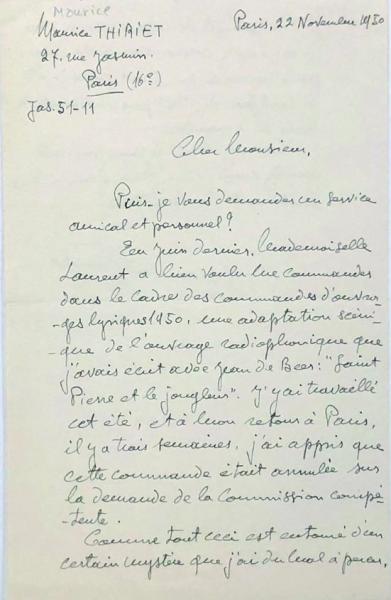 Maurice
Maurice THIRIET
27, rue Jasmin.
Paris (16e)
Jas. 51-11
Paris, 22 Novembre 1950
Cher Monsieur,
Puis-je vous demander un service
amical et personnel?
En Juin dernier, Mademoiselle
Laurent a bien voulu me commander
dans le cadre des commandes d'ouvra-
-ges lyriques 1950, une adaptation scéni-
-que de l'ouvrage radiophonique que
j'avais écrit avec Jean de Beer: "Saint
Pierre et le jongleur". J'y ai travaillé
cet été, et à mon retour à Paris,
il y a trois semaines, j'ai appris que
cette commande était annulée sur
la demande de la Commission compé-
-tente.
Comme tout ceci est entouré d'un
certain mystère que j'ai du mal à percer,